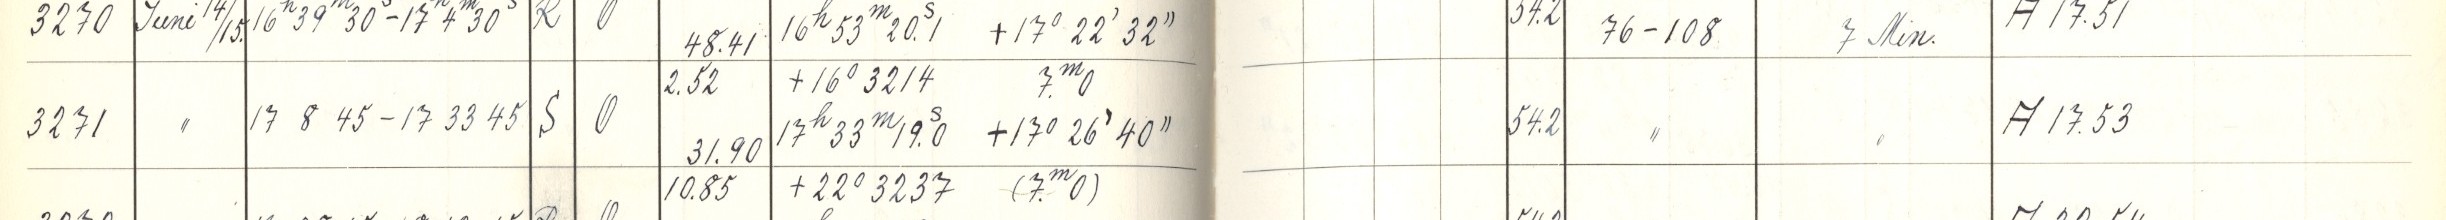 3270 Juni 14/15. 16h 39m 30s – 17h 4m 30s R O 48.41 16h 53m 20.s1 +17° 22' 32" 54.2 76 – 108 7 Min. A 17.51
2.52 +16° 3214 7.m0
3271 " 17 8 45 – 17 33 45 S O 31.90 17h 33m 19.s0 +17° 26' 40" 54.2 " " A 17.53
10.85 +22° 3237 (7.m0)